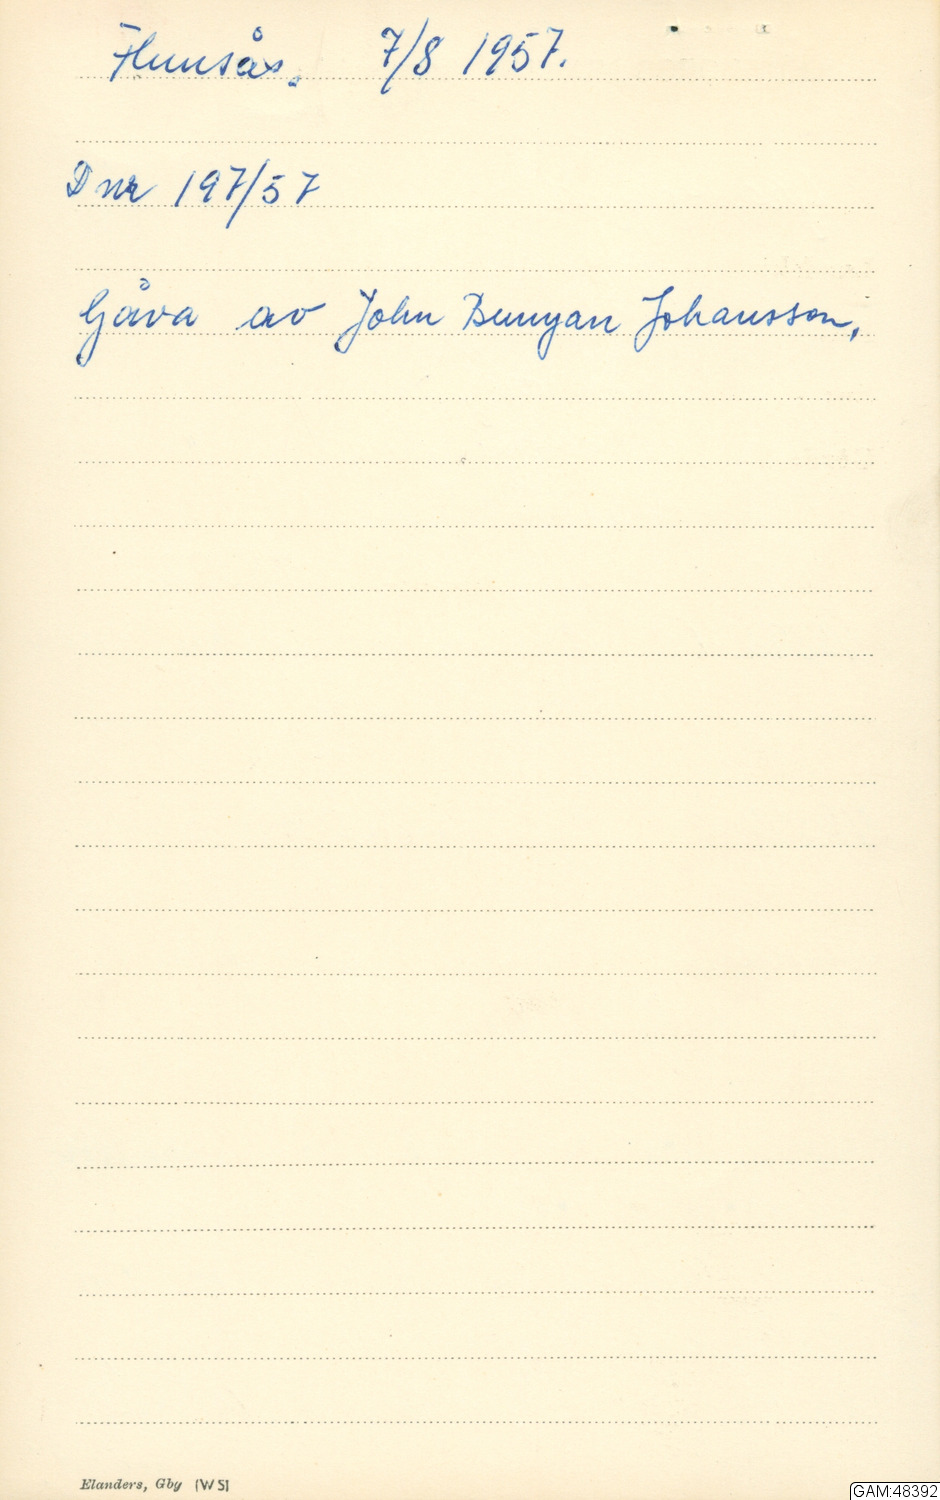 Flunsås, 7/8 1957.
Dnr 197/57
Gåva av John Bunyan Johansson,
Elanders, Gby (WS)
GAM:48392